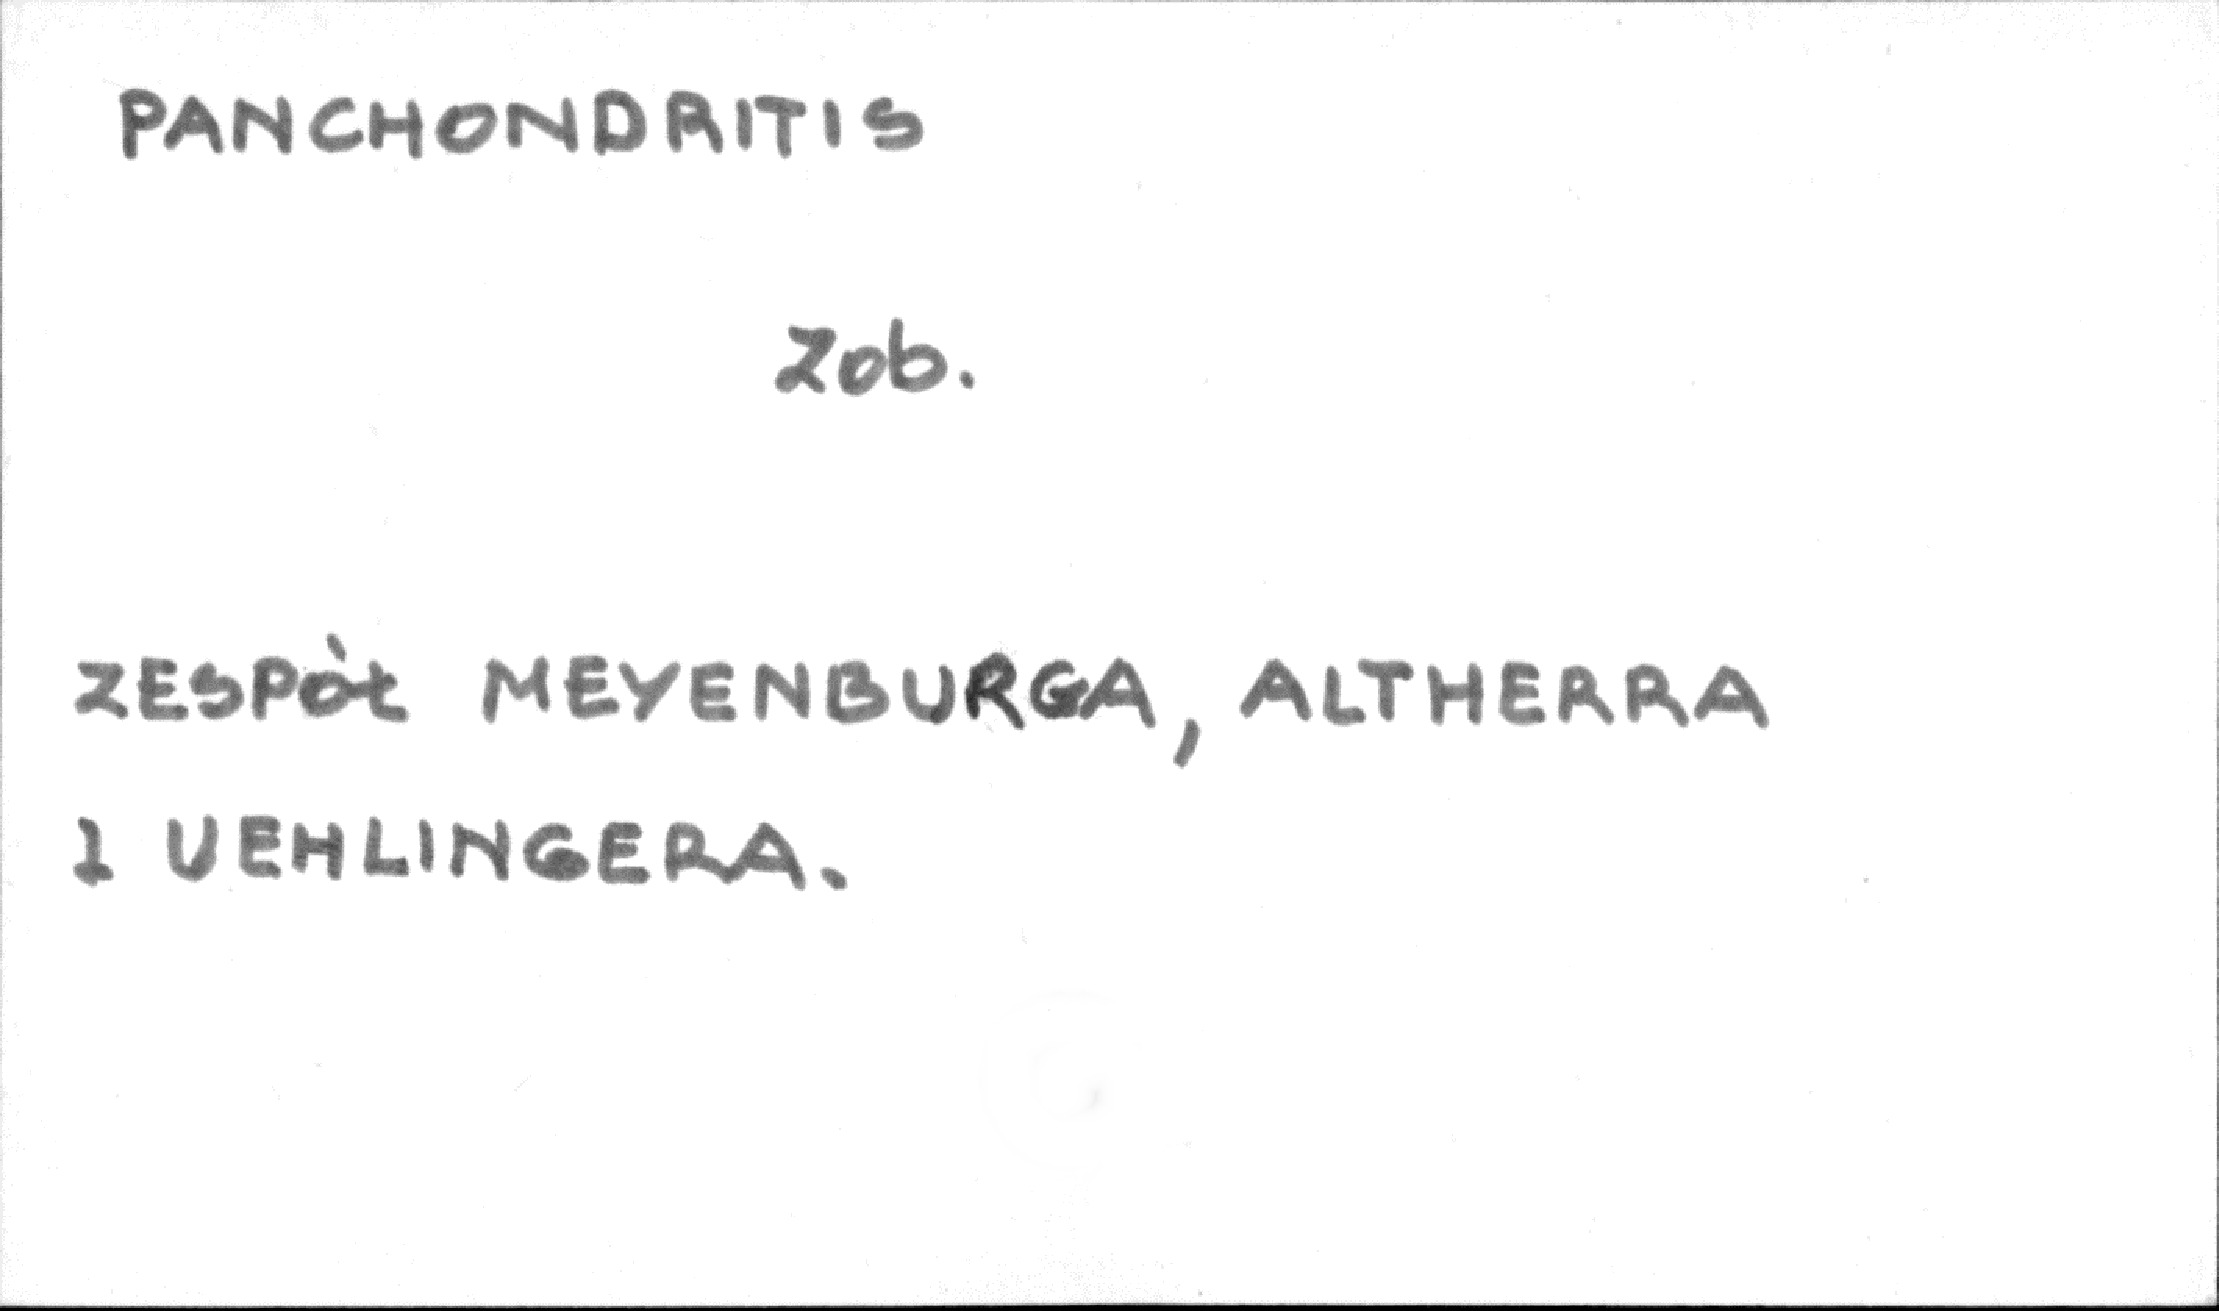 PANCHONDRITIS
Zob.
ZESPÓŁ MEYENBURGA, ALTHERRA
I UEHLINGERA.